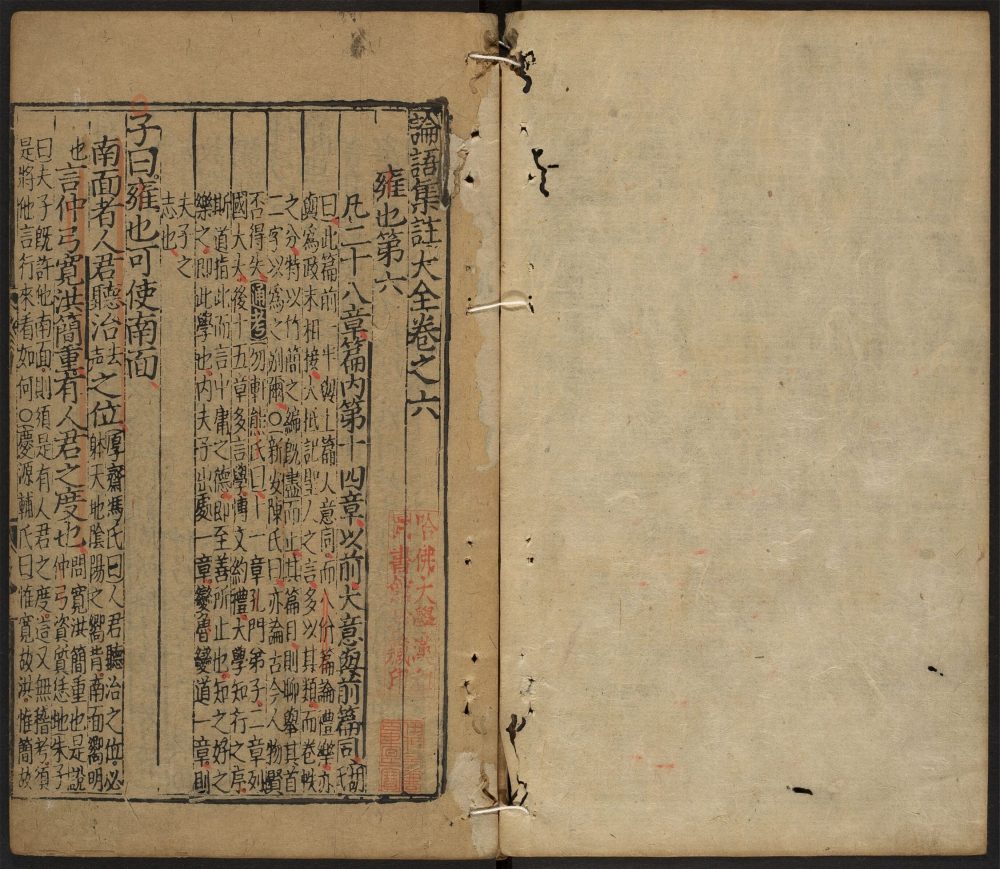 論語集註大全卷之六
雍也第六
凡二十八章篇內第十四章以前大意與前篇同胡氏
曰此篇前一半與上篇人意同而八佾篇論禮樂亦
與為政末相接大抵記聖人之言多以其類而卷帙
之分特以竹簡之編既盡而止其篇目則聊舉其首
二字以為之別爾○新安陳氏曰亦論古今人物賢
否得失通考勿軒熊氏曰十一章孔門弟子二章列
國大夫後十五章多言學博文約禮大學知行之序
斯道指此而言中庸之德即至善所止也知之好之
樂之即此學也內夫子出處一章變魯變道一章則
夫子之
志也
子曰雍也可使南面
南面者人君聽治去聲之位厚齋馮氏曰人君聽治之位必
躰天地陰陽之嚮背南面嚮明
也言仲弓寬洪簡重有人君之度也問寬洪簡重也是說
仲弓資質恁地朱子
曰夫子既許他南面則須是有人君之度這又無稽考須
是將他言行來看如何○慶源輔氏曰惟寬故洪惟簡故
哈佛大學漢和
圖書館珍藏印